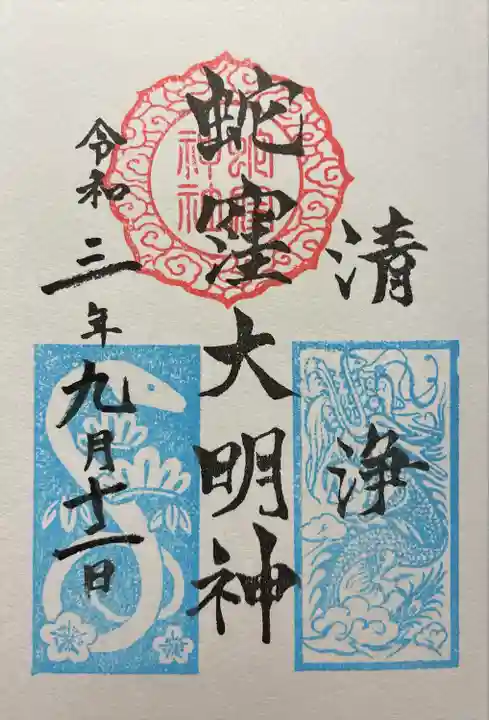 清浄
蛇窪大明神
令和三年九月十一日